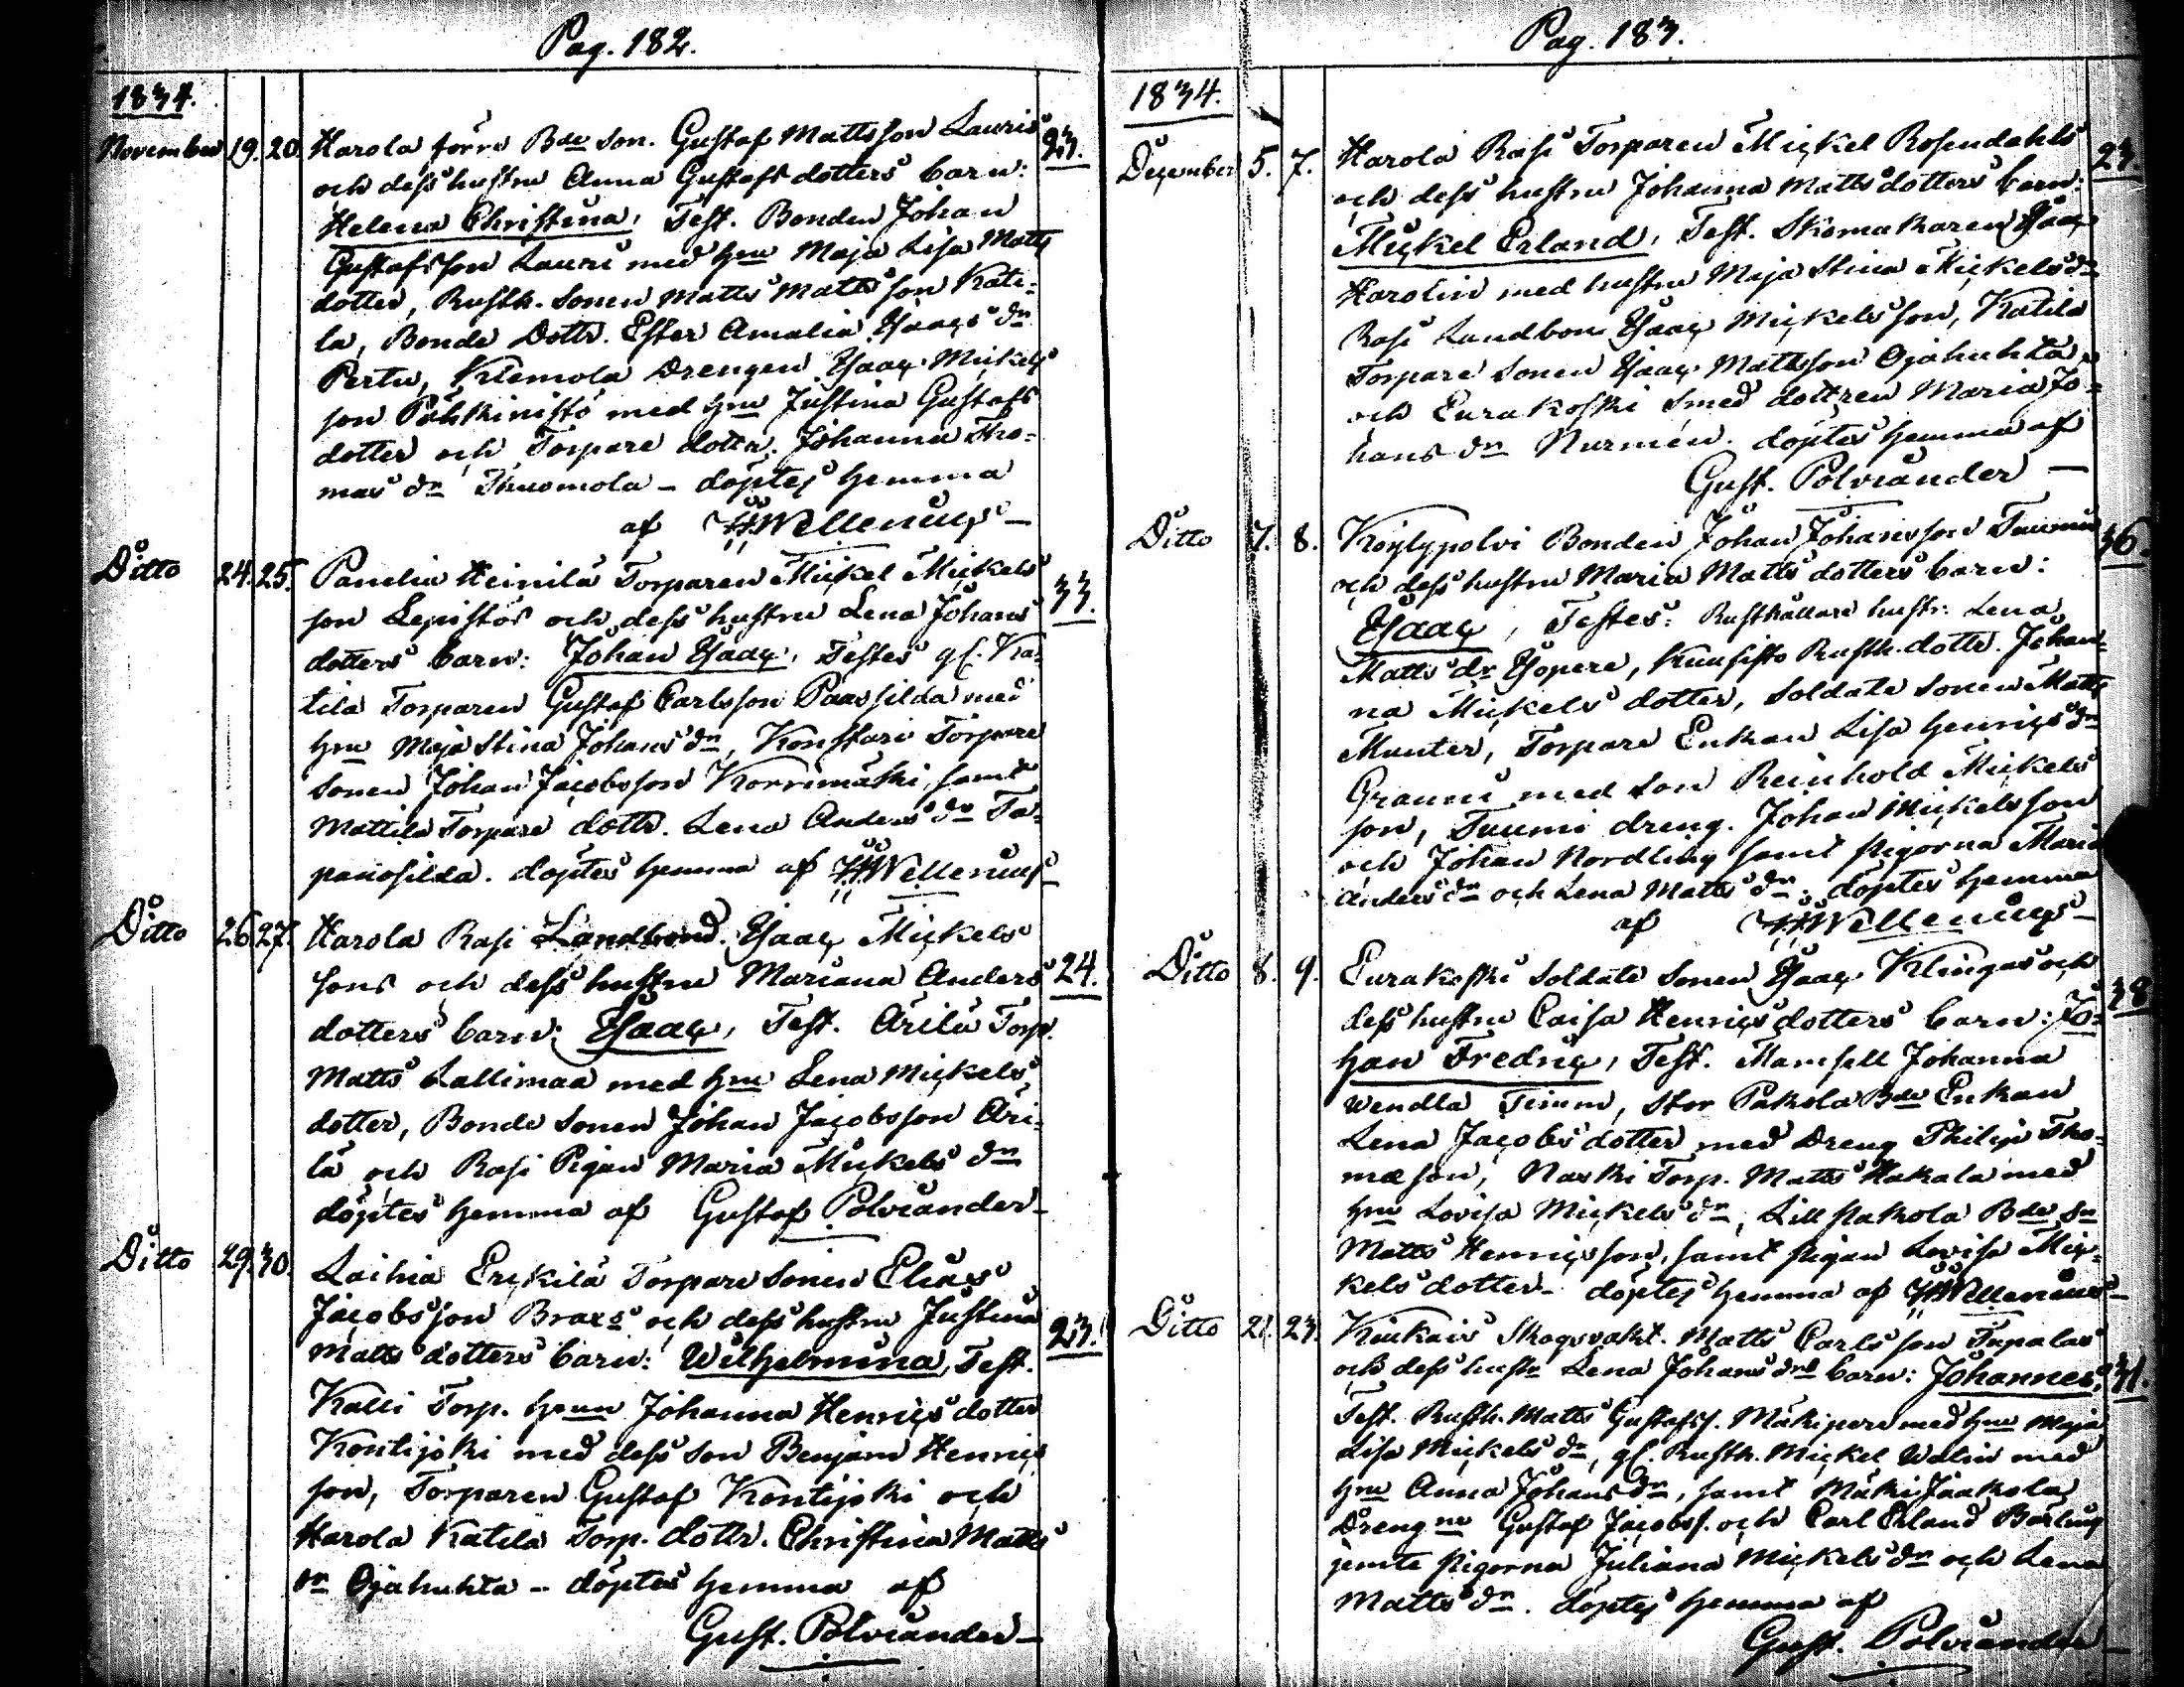 Pag. 182.
1834.
November 19. 20. Harola förre Bde son. Gustaf Mattsson Lauris 23.
och dess hustru Anna Gustafs dotters barn:
Helena Christina, Test. Bonden Johan
Gustafsson Lauri med hru Maja Lisa Matts
dotter, Rusth. Sonen Matts Mattsson Kati=
la, Bonde Dottr. Ester Amalia Isaacs dr
Pertu, Klemola Drengen Isaac Mickels
son Pähkinistö med hru Justina Gustafs
dotter och Torpare dottr. Johanna Tho=
mas dr Thuomola - döptes hemma
af HHWellenius -
Ditto 24. 25. Panelia Heinilä Torparen Mickel Mickels
son Lepistös och dess hustru Lena Johans 33.
dotters barn: Johan Isaac, Testes gl. Ka=
tila Torparen Gustaf Carlsson Paassilda med
hru Maja Stina Johans dr, Konstari Torpare
sonen Johan Jacobsson Korrimäki, samt
Mattila Torpare dottr. Lena Anders dr Ta=
panosilda. döptes hemma af HHWellenius
Ditto 26 27. Harola Rasi Landbond. Isaac Mickels
sons och dess hustru Mariana Anders 24.
dotters barn: Isaac, Test. Ärilä Torp.
Matts Lallimaa med hru Lena Mickels
dotter, Bonde Sonen Johan Jacobsson Äri=
lä och Rasi Pigan Maria Mickels dr
döptes hemma af Gustaf Polviander -
Ditto 29. 30. Laihia Erckilä Torpare Sonen Elias
Jacobsson Braxs och dess hustru Justina
Matts dotters barn: Wilhelmina, Test. 23.
Kalli Torp. hrun Johanna Henrics dotter
Kontijoki med dess son Benjam Henrics
son, Torparen Gustaf Kontijoki och
Harola Katila Torp. dottr. Christina Matts
dr Ojahuhta - döptes hemma af
Gust. Polviander -
Pag. 183.
1834.
December 5. 7. Harola Rasi Torparen Mickel Rosendahls 23
och dess hustru Johanna Matts dotters barn:
Mickel Erland, Test. Skomakaren Isaac
Harolin med hustru Maja Stina Mickels dr
Rasi Landbon Isaac Mickelsson, Katila
Torpare Sonen Isaac Mattsson Ojahuhta
och Eurakoski Smed dottren Maria Jo=
hans dr Nurmén. döptes hemma af
Gust. Polviander -
Ditto 7. 8. Köylypolvi Bonden Johan Johansson Tuumi 36.
och dess hustru Maria Matts dotters barn:
Isaac, Testes: Rusthållare hustr. Lena
Matts dr Isopere, Kuusisto Rusth. dottr. Johan=
na Mickels dotter, Soldate Sonen Matts
Munter, Torpare Enkan Lisa Henrics dr
Granni med Son Reinhold Mickels
son, Tuumi dreng. Johan Mickelsson
och Johan Nordling samt pigorna Maria
Anders dr och Lena Matts dr. döptes hemma
af HHWellenius -
Ditto 8. 9. Eurakoski Soldate Sonen Isaac Klingas och
dess hustru Caisa Henrics dotters barn: Jo= 38
han Fredric, Test. Mamsell Johanna
Wendla Timm, Stor Pakola Bde Enkan
Lena Jacobs dotter med Dreng Philip Tho=
mæson, Naski Torp. Matts Hakala med
hru Lovisa Mickels dr, Lill pakola Bde Sn
Matts Henricsson, samt pigan Lovisa Mic=
kels dotter - döptes hemma af HHWellenius -
Ditto 21. 23. Kiukais Skogsvakt. Matts Carlsson Tupalas
och dess hustr Lena Johans drs barn: Johannes, 31.
Test. Rusth. Matts Gustafss. Mäkipere med hru Maja
Lisa Mickels dr, gl. Rusth. Mickel Walin med
hru Anna Johans dr, samt Mäki Jaakola
Drengne Gustaf Jacobss. och Carl Erland Bärling
jemte pigorna Juliana Mickels dr och Lena
Matts dr. döptes hemma af
Gust. Polviander -